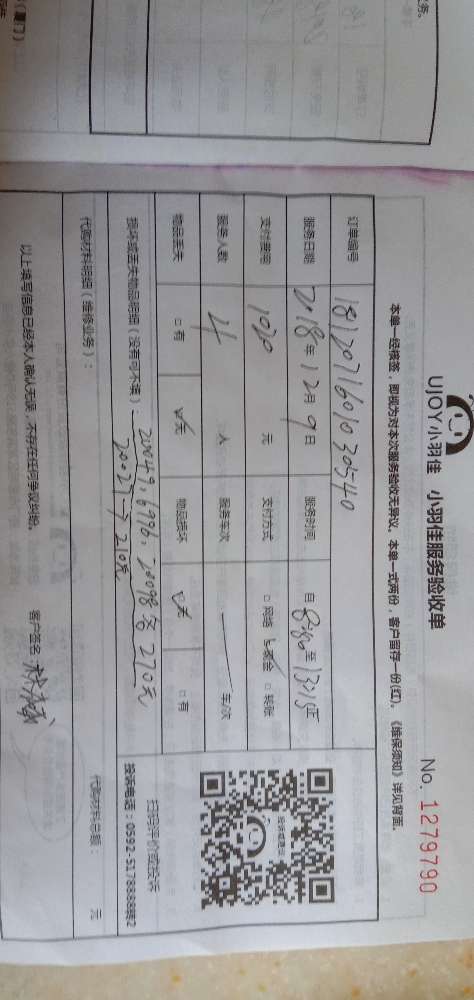 UJOY小羽佳 小羽佳服务验收单
No. 1279790
本单一经核签，即视为对本次服务验收无异议。本单一式两份，客户留存一份(红)。《维保须知》详见背面。
订单编号
服务日期 2018年12月9日 服务时间 自 至
支付费用 元 支付方式 □网络 现金 □转账
服务人数 4 人 服务车次 车/次
物品丢失 □有 无 物品损坏 无 □有
扫码评价或投诉
投诉电话：0592-5178888转2
损坏或丢失物品明细（没有可不填）：20049, 6996, 20098各270元
20027→210元
代购材料明细（维修业务）： 代购材料总额： 元
以上填写信息已经本人确认无误，不存在任何争议纠纷。 客户签名：